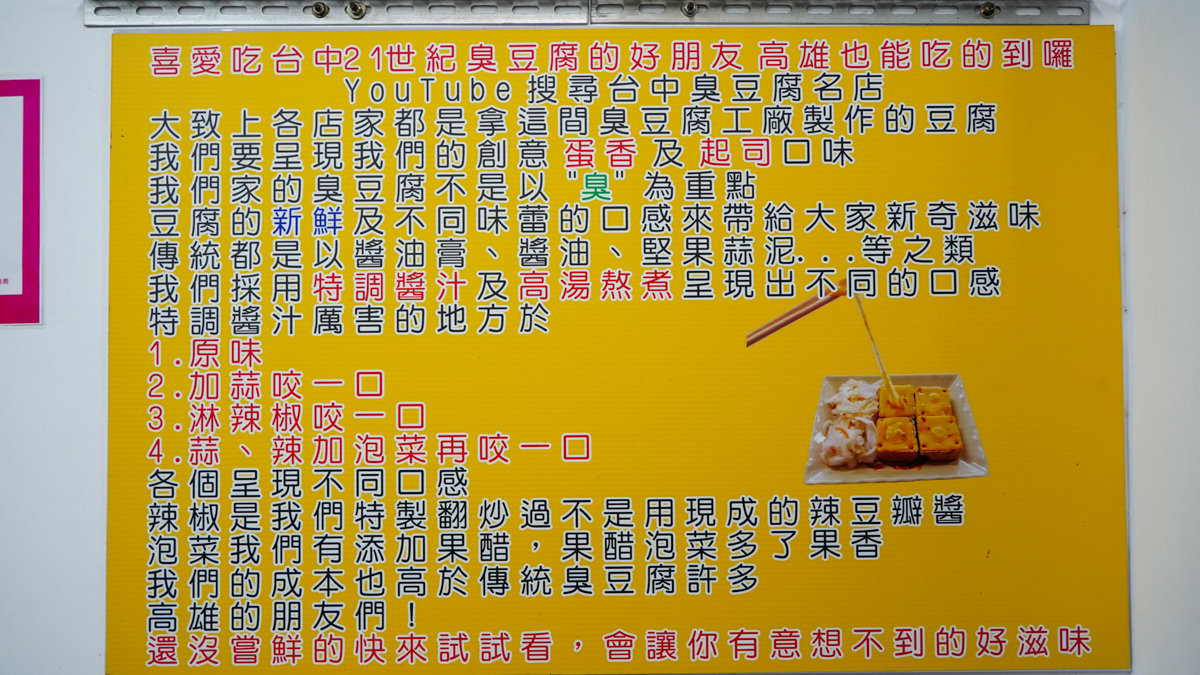 喜愛吃台中21世紀臭豆腐的好朋友高雄也能吃的到囉
YouTube搜尋台中臭豆腐名店
大致上各店家都是拿這間臭豆腐工廠製作的豆腐
我們要呈現我們的創意蛋香及起司口味
我們家的臭豆腐不是以"臭"為重點
豆腐的新鮮及不同味蕾的口感來帶給大家新奇滋味
傳統都是以醬油膏、醬油、堅果蒜泥...等之類
我們採用特調醬汁及高湯熬煮呈現出不同的口感
特調醬汁厲害的地方於
1.原味
2.加蒜咬一口
3.淋辣椒咬一口
4.蒜、辣加泡菜再咬一口
各個呈現不同口感
辣椒是我們特製翻炒過不是用現成的辣豆瓣醬
泡菜我們有添加果醋，果醋泡菜多了果香
我們的成本也高於傳統臭豆腐許多
高雄的朋友們！
還沒嘗鮮的快來試試看，會讓你有意想不到的好滋味